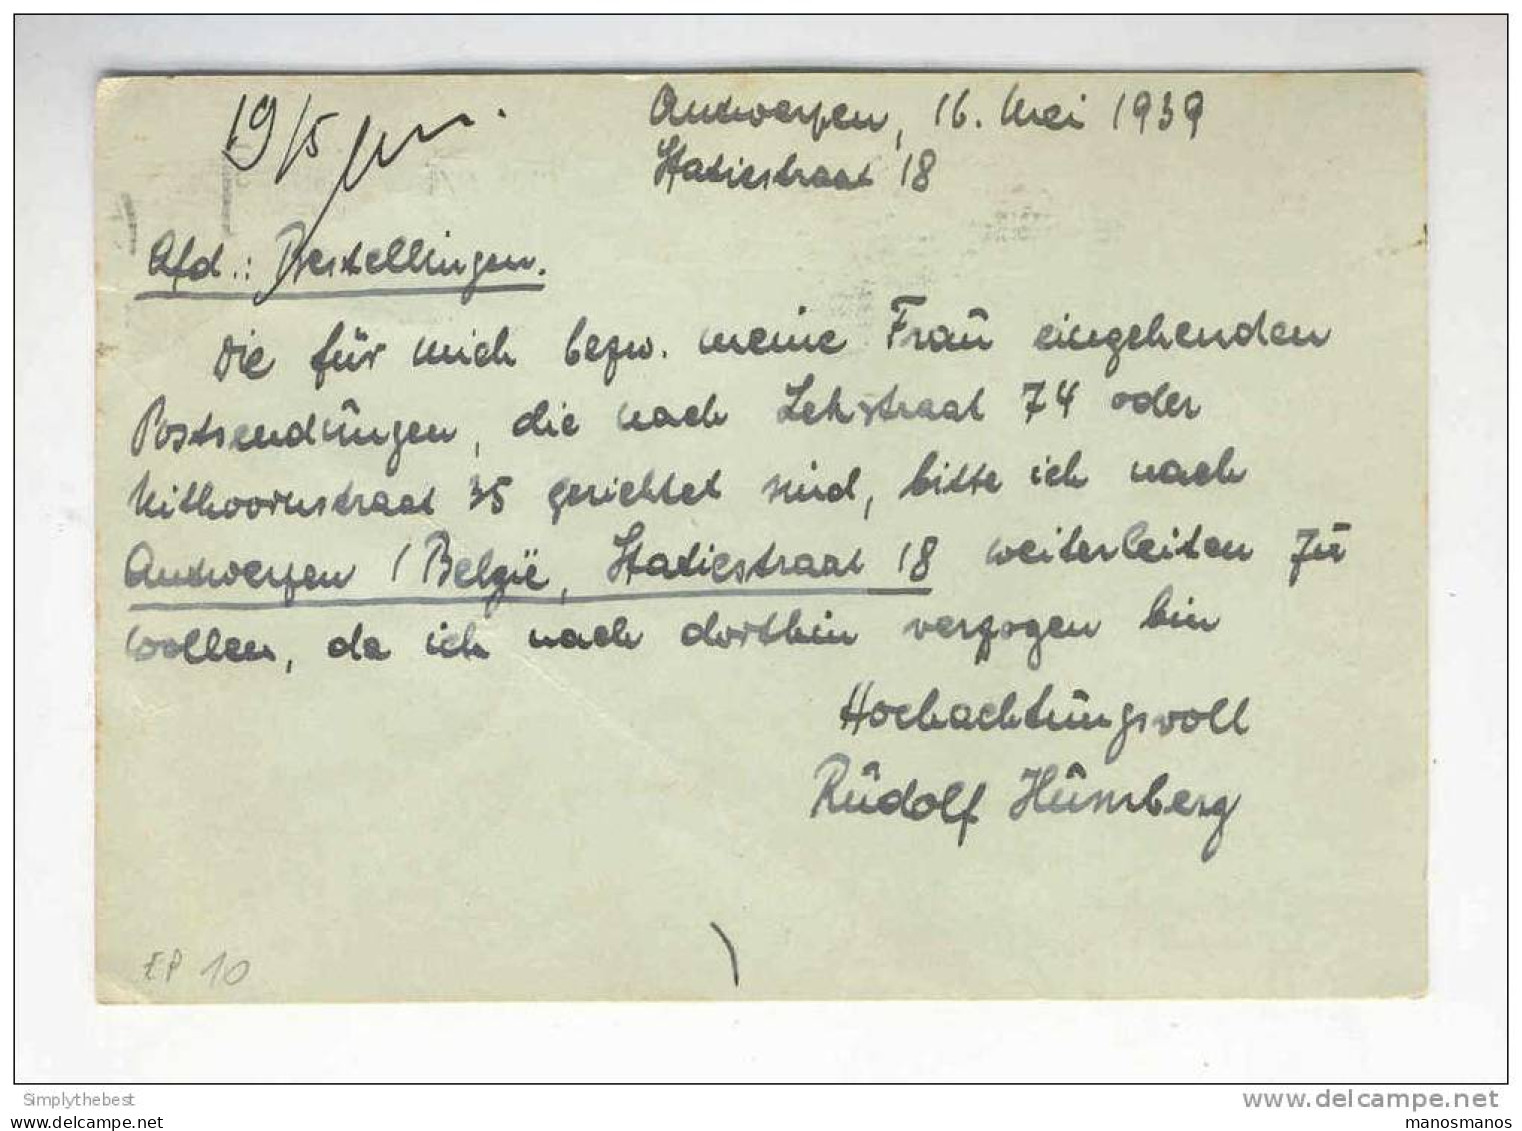 19/5
Antwerpen, 16. Mei 1939
Statiestraat 18
Afd.: Bestellingen.
Die für mich bezw. meine Frau eingehenden
Postsendungen, die nach Lekstraat 74 oder
Uithoornstraat 35 gerichtet sind, bitte ich nach
Antwerpen / België, Statiestraat 18 weiterleiten zu
wollen, da ich nach dorthin verzogen bin
Hochachtungsvoll
Rudolf Humberg
EP 10
Simplythebest
www.delcampe.net
manosmanos